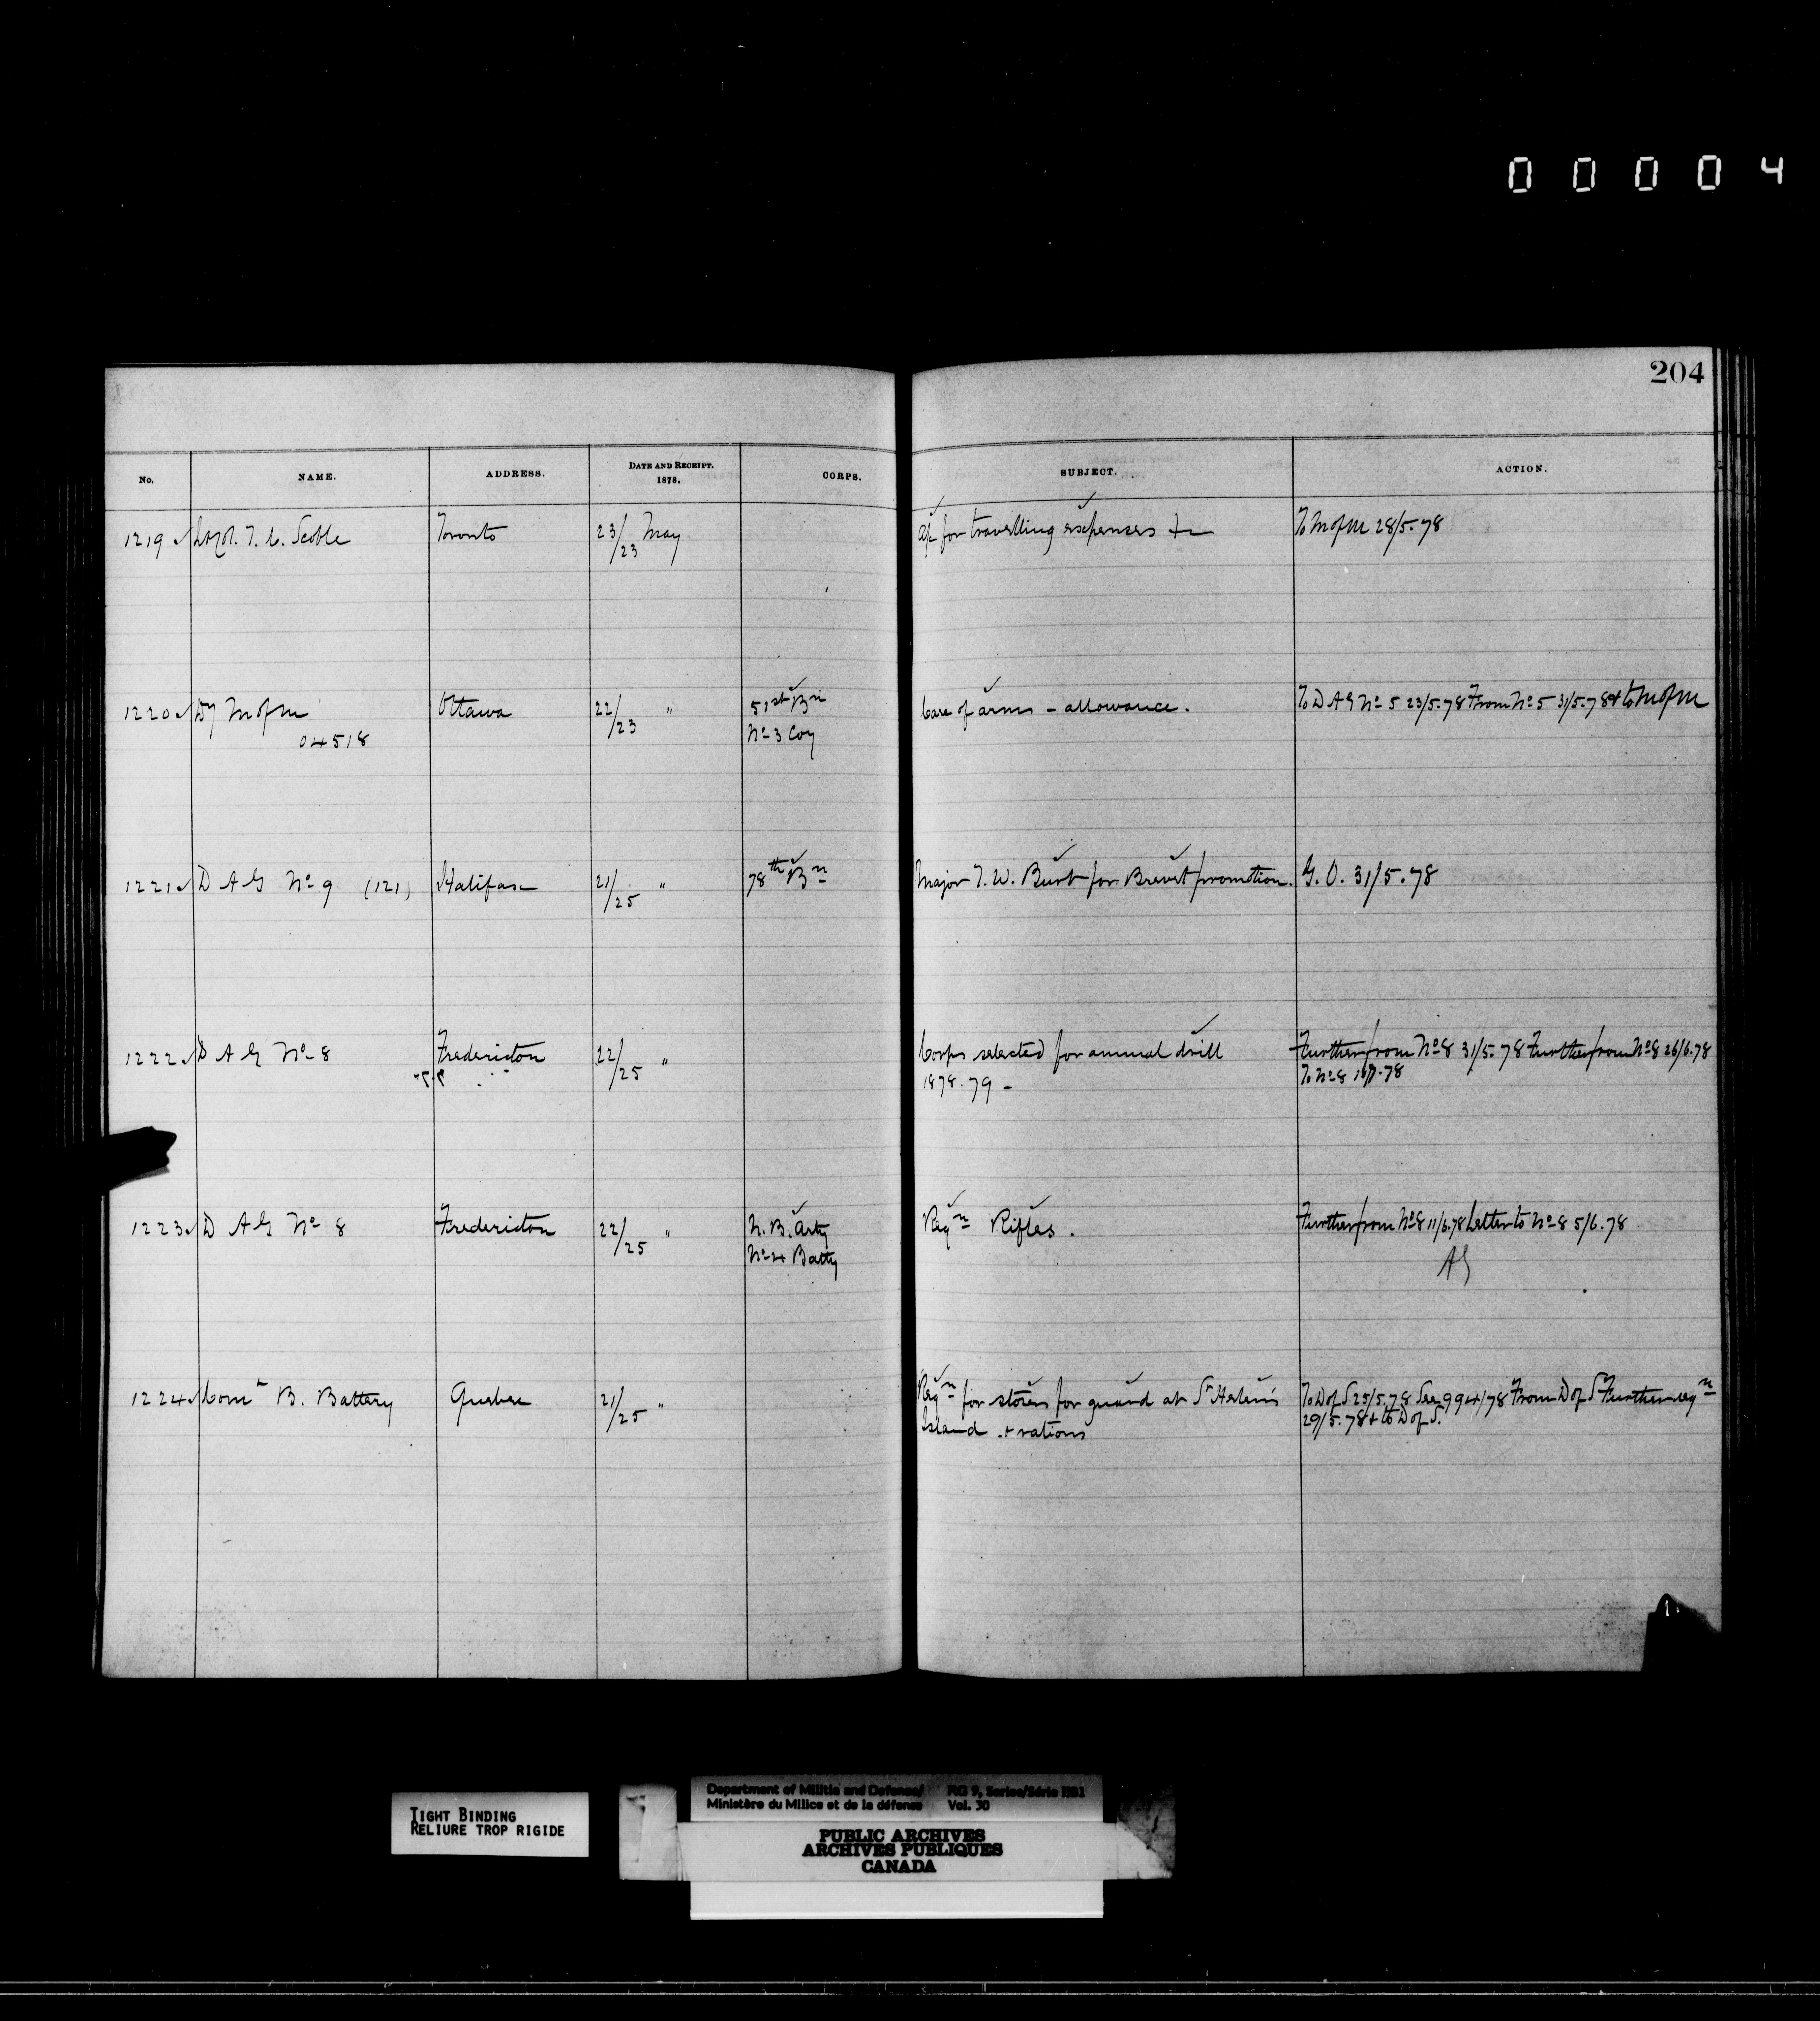 00004
204
No. NAME. ADDRESS. DATE AND RECEIPT. 1878. CORPS. SUBJECT. ACTION.
1219 Lt Col. T. C. Scoble Toronto 23/23 May a/c for travelling expenses &c To M of M 28/5.78
1220 Dy M of M Ottawa 22/23 " 51st Bn Care of arms - allowance. To D A G No 5 23/5.78 From No 5 31/5.78 & to M of M
04518 No 3 Coy
1221 D A G No 9 (121) Halifax 21/25 " 78th Bn Major T. W. Burt for Brevet promotion. G. O. 31/5.78
1222 D A G No 8 Fredericton 22/25 " Corps selected for annual drill Further from No 8 31/5.78 Further from No 8 26/6.78
1878.79 - To No 8 .78
1223 D A G No 8 Fredericton 22/25 " N. B. Arty Reqn Rifles. Further from No 8 11/6.78 Letter to No 8 5/6.78
No 4 Batty AG
1224 Comt B. Battery Quebec 21/25 " Reqn for stores for guard at St Helen's To D of S 25/5.78 See 994/78 From D of S Further reqn
Island + rations 29/5.78 + to D of S.
TIGHT BINDING
RELIURE TROP RIGIDE
Department of Militia and Defence/ RG 9, Series/Série IIB1
Ministère du Milice et de la défense Vol. 30
PUBLIC ARCHIVES
ARCHIVES PUBLIQUES
CANADA